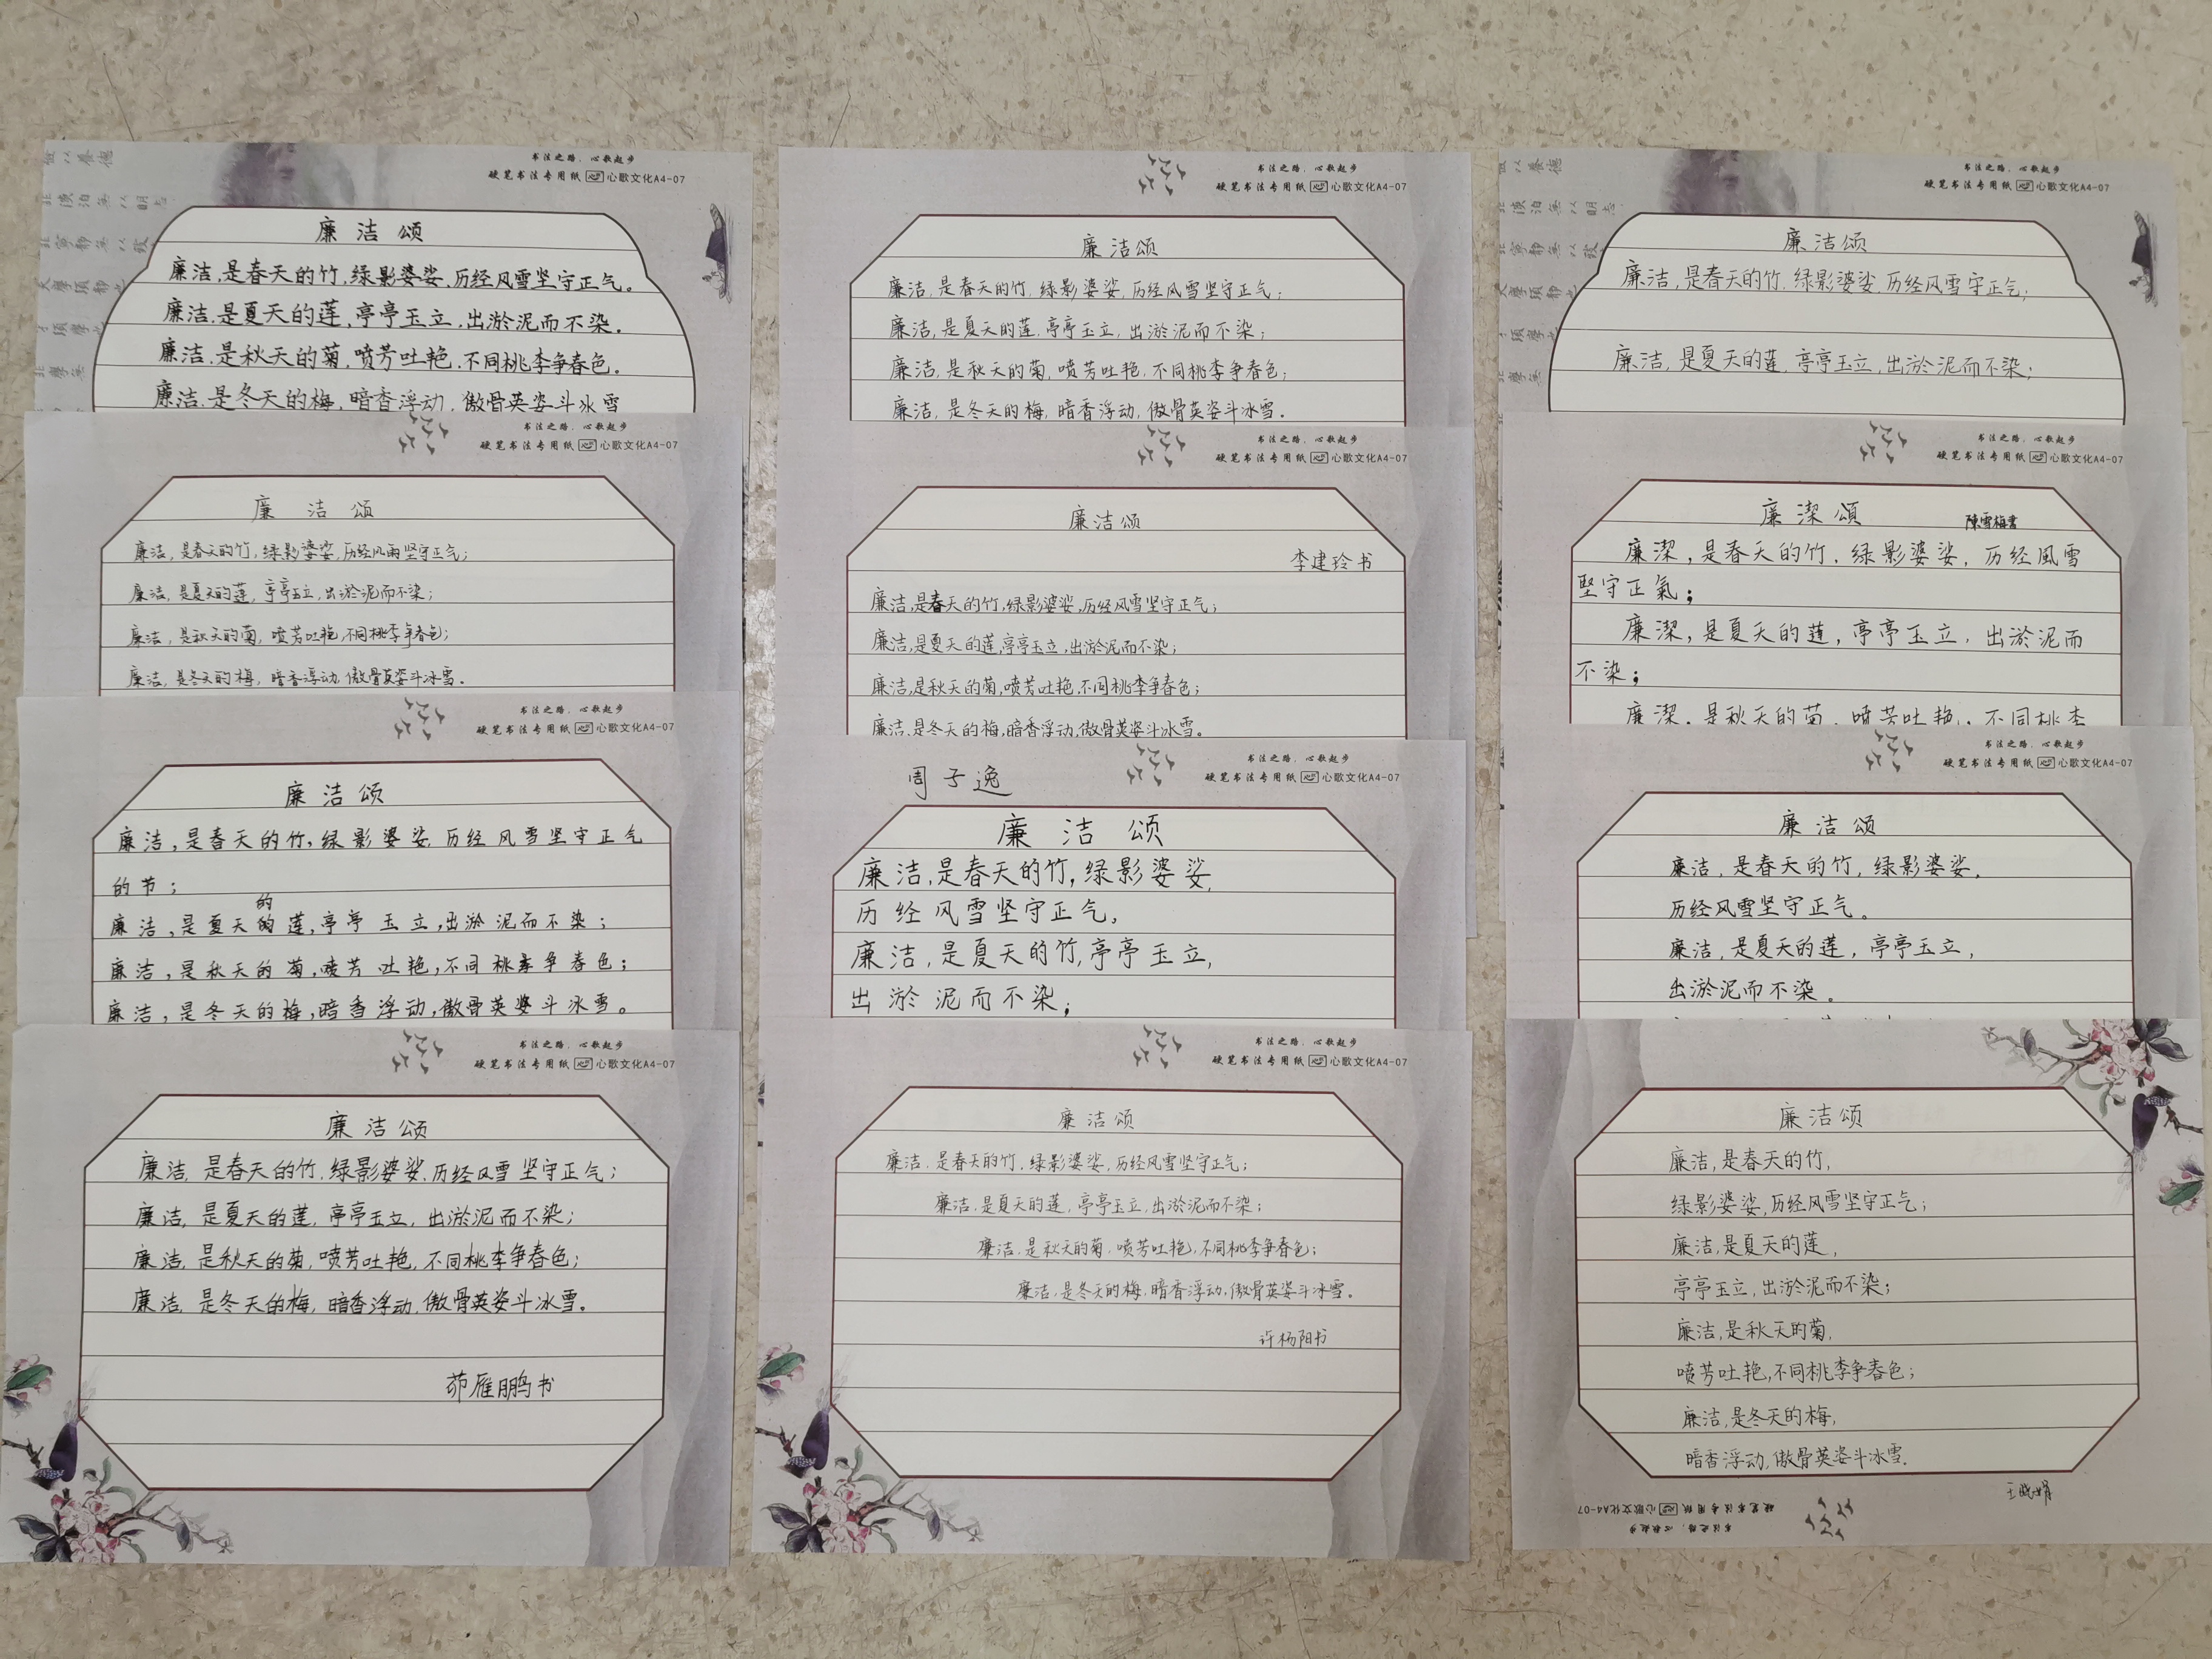 书法之路，心歌起步
硬笔书法专用纸 心歌文化A4-07
廉洁颂
廉洁,是春天的竹,绿影婆娑,历经风雪坚守正气。
廉洁,是夏天的莲,亭亭玉立,出淤泥而不染。
廉洁,是秋天的菊,喷芳吐艳,不同桃李争春色。
廉洁,是冬天的梅,暗香浮动,傲骨英姿斗冰雪
书法之路，心歌起步
硬笔书法专用纸 心歌文化A4-07
廉洁颂
廉洁,是春天的竹,绿影婆娑,历经风雨坚守正气;
廉洁,是夏天的莲,亭亭玉立,出淤泥而不染;
廉洁,是秋天的菊,喷芳吐艳,不同桃李争春色;
廉洁,是冬天的梅,暗香浮动,傲骨英姿斗冰雪。
书法之路，心歌起步
硬笔书法专用纸 心歌文化A4-07
廉洁颂
廉洁,是春天的竹,绿影婆娑,历经风雪坚守正气
的节;
的
廉洁,是夏天的莲,亭亭玉立,出淤泥而不染;
廉洁,是秋天的菊,喷芳吐艳,不同桃李争春色;
廉洁,是冬天的梅,暗香浮动,傲骨英婆斗冰雪。
书法之路，心歌起步
硬笔书法专用纸 心歌文化A4-07
廉洁颂
廉洁,是春天的竹,绿影婆娑,历经风雪坚守正气;
廉洁,是夏天的莲,亭亭玉立,出淤泥而不染;
廉洁,是秋天的菊,喷芳吐艳,不同桃李争春色;
廉洁,是冬天的梅,暗香浮动,傲骨英姿斗冰雪。
茆雁鹏书
书法之路，心歌起步
硬笔书法专用纸 心歌文化A4-07
廉洁颂
廉洁,是春天的竹,绿影婆娑,历经风雪坚守正气;
廉洁,是夏天的莲,亭亭玉立,出淤泥而不染;
廉洁,是秋天的菊,喷芳吐艳,不同桃李争春色;
廉洁,是冬天的梅,暗香浮动,傲骨英姿斗冰雪.
书法之路，心歌起步
硬笔书法专用纸 心歌文化A4-07
廉洁颂
李建玲书
廉洁,是春天的竹,绿影婆娑,历经风雪坚守正气;
廉洁,是夏天的莲,亭亭玉立,出淤泥而不染;
廉洁,是秋天的菊,喷芳吐艳,不同桃李争春色;
廉洁,是冬天的梅,暗香浮动,傲骨英姿斗冰雪。
周子逸
书法之路，心歌起步
硬笔书法专用纸 心歌文化A4-07
廉洁颂
廉洁,是春天的竹,绿影婆娑,
历经风雪坚守正气,
廉洁,是夏天的竹,亭亭玉立,
出淤泥而不染;
书法之路，心歌起步
硬笔书法专用纸 心歌文化A4-07
廉洁颂
廉洁,是春天的竹,绿影婆娑,历经风雪坚守正气;
廉洁,是夏天的莲,亭亭玉立,出淤泥而不染;
廉洁,是秋天的菊,喷芳吐艳,不同桃李争春色;
廉洁,是冬天的梅,暗香浮动,傲骨英姿斗冰雪。
许杨阳书
书法之路，心歌起步
硬笔书法专用纸 心歌文化A4-07
廉洁颂
廉洁,是春天的竹,绿影婆娑,历经风雪守正气;
廉洁,是夏天的莲,亭亭玉立,出淤泥而不染;
书法之路，心歌起步
硬笔书法专用纸 心歌文化A4-07
廉潔頌
陳雪梅書
廉潔,是春天的竹,绿影婆娑,历经風雪
堅守正氣;
廉潔,是夏天的莲,亭亭玉立,出淤泥而
不染;
廉潔,是秋天的菊,喷芳吐艳,不同桃李
书法之路，心歌起步
硬笔书法专用纸 心歌文化A4-07
廉洁颂
廉洁,是春天的竹,绿影婆娑,
历经风雪坚守正气。
廉洁,是夏天的莲,亭亭玉立,
出淤泥而不染。
廉洁颂
廉洁,是春天的竹,
绿影婆娑,历经风雪坚守正气;
廉洁,是夏天的莲,
亭亭玉立,出淤泥而不染;
廉洁,是秋天的菊,
喷芳吐艳,不同桃李争春色;
廉洁,是冬天的梅,
暗香浮动,傲骨英姿斗冰雪.
王晓娟
硬笔书法专用纸 心歌文化A4-07
书法之路，心歌起步